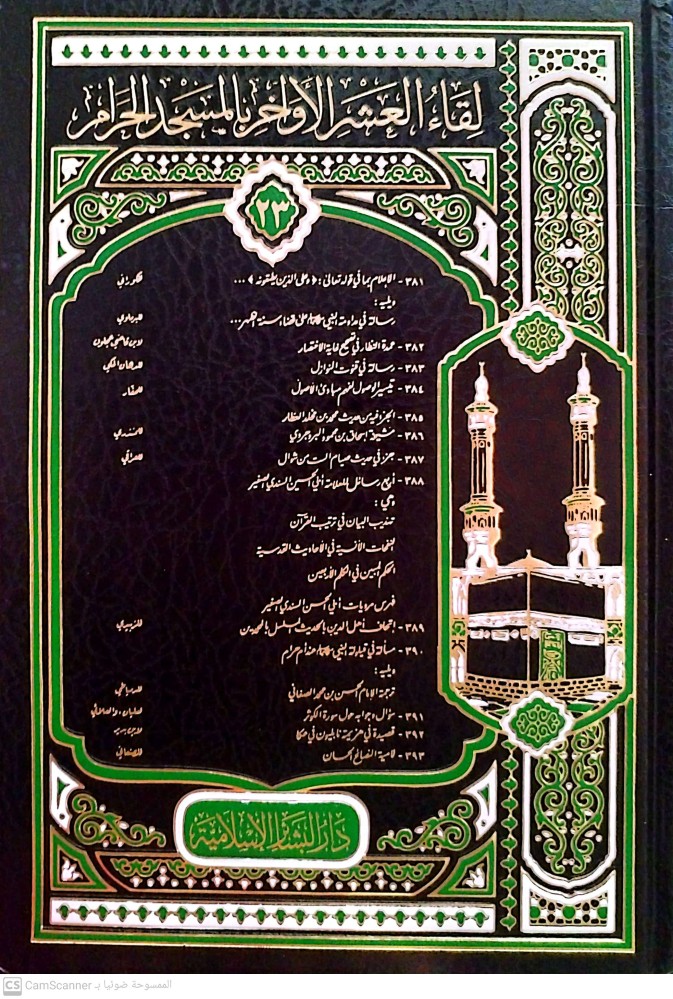 لقاء العشر الأواخر بالمسجد الحرام
٢٣
٣٨١ - الإعلام بما في قوله تعالى: ﴿وعلى الذين يطيقونه﴾ ... للكوراني
ويليه:
رسالة في مداومة النبي ﷺ على قضاء سنة الظهر... للبرماوي
٣٨٢ - عمدة النظار في تصحيح غاية الاختصار لابن قاضي عجلون
٣٨٣ - رسالة في قنوت النوازل للدهان المكي
٣٨٤ - تيسير الوصول لفهم مبادئ الأصول للعطار
٣٨٥ - الجزء فيه من حديث محمد بن مخلد العطار
٣٨٦ - مشيخة إسحاق بن محمود البروجردي للمنذري
٣٨٧ - جزء في حديث صيام الست من شوال للعراقي
٣٨٨ - أربع رسائل للعلامة أبي الحسن السندي الصغير
وهي:
تهذيب البيان في ترتيب القرآن
النفحات الأنسية في الأحاديث القدسية
الحكم المبين في الكلم الأربعين
فهرس مرويات أبي الحسن السندي الصغير
٣٨٩ - إتحاف أهل الدين بالحديث المسلسل بالمحمدين للزبيدي
٣٩٠ - مسألة في قيلولة النبي ﷺ عند أم حرام
ويليه:
ترجمة الإمام الحسن بن محمد الصغاني للدمياطي
٣٩١ - سؤال وجوابه حول سورة الكوثر
٣٩٢ - قصيدة في هزيمة نابليون في عكا
٣٩٣ - لامية النصائح الحسان للصنعاني
دار البشائر الإسلامية
CS CamScanner الممسوحة ضوئيا بـ